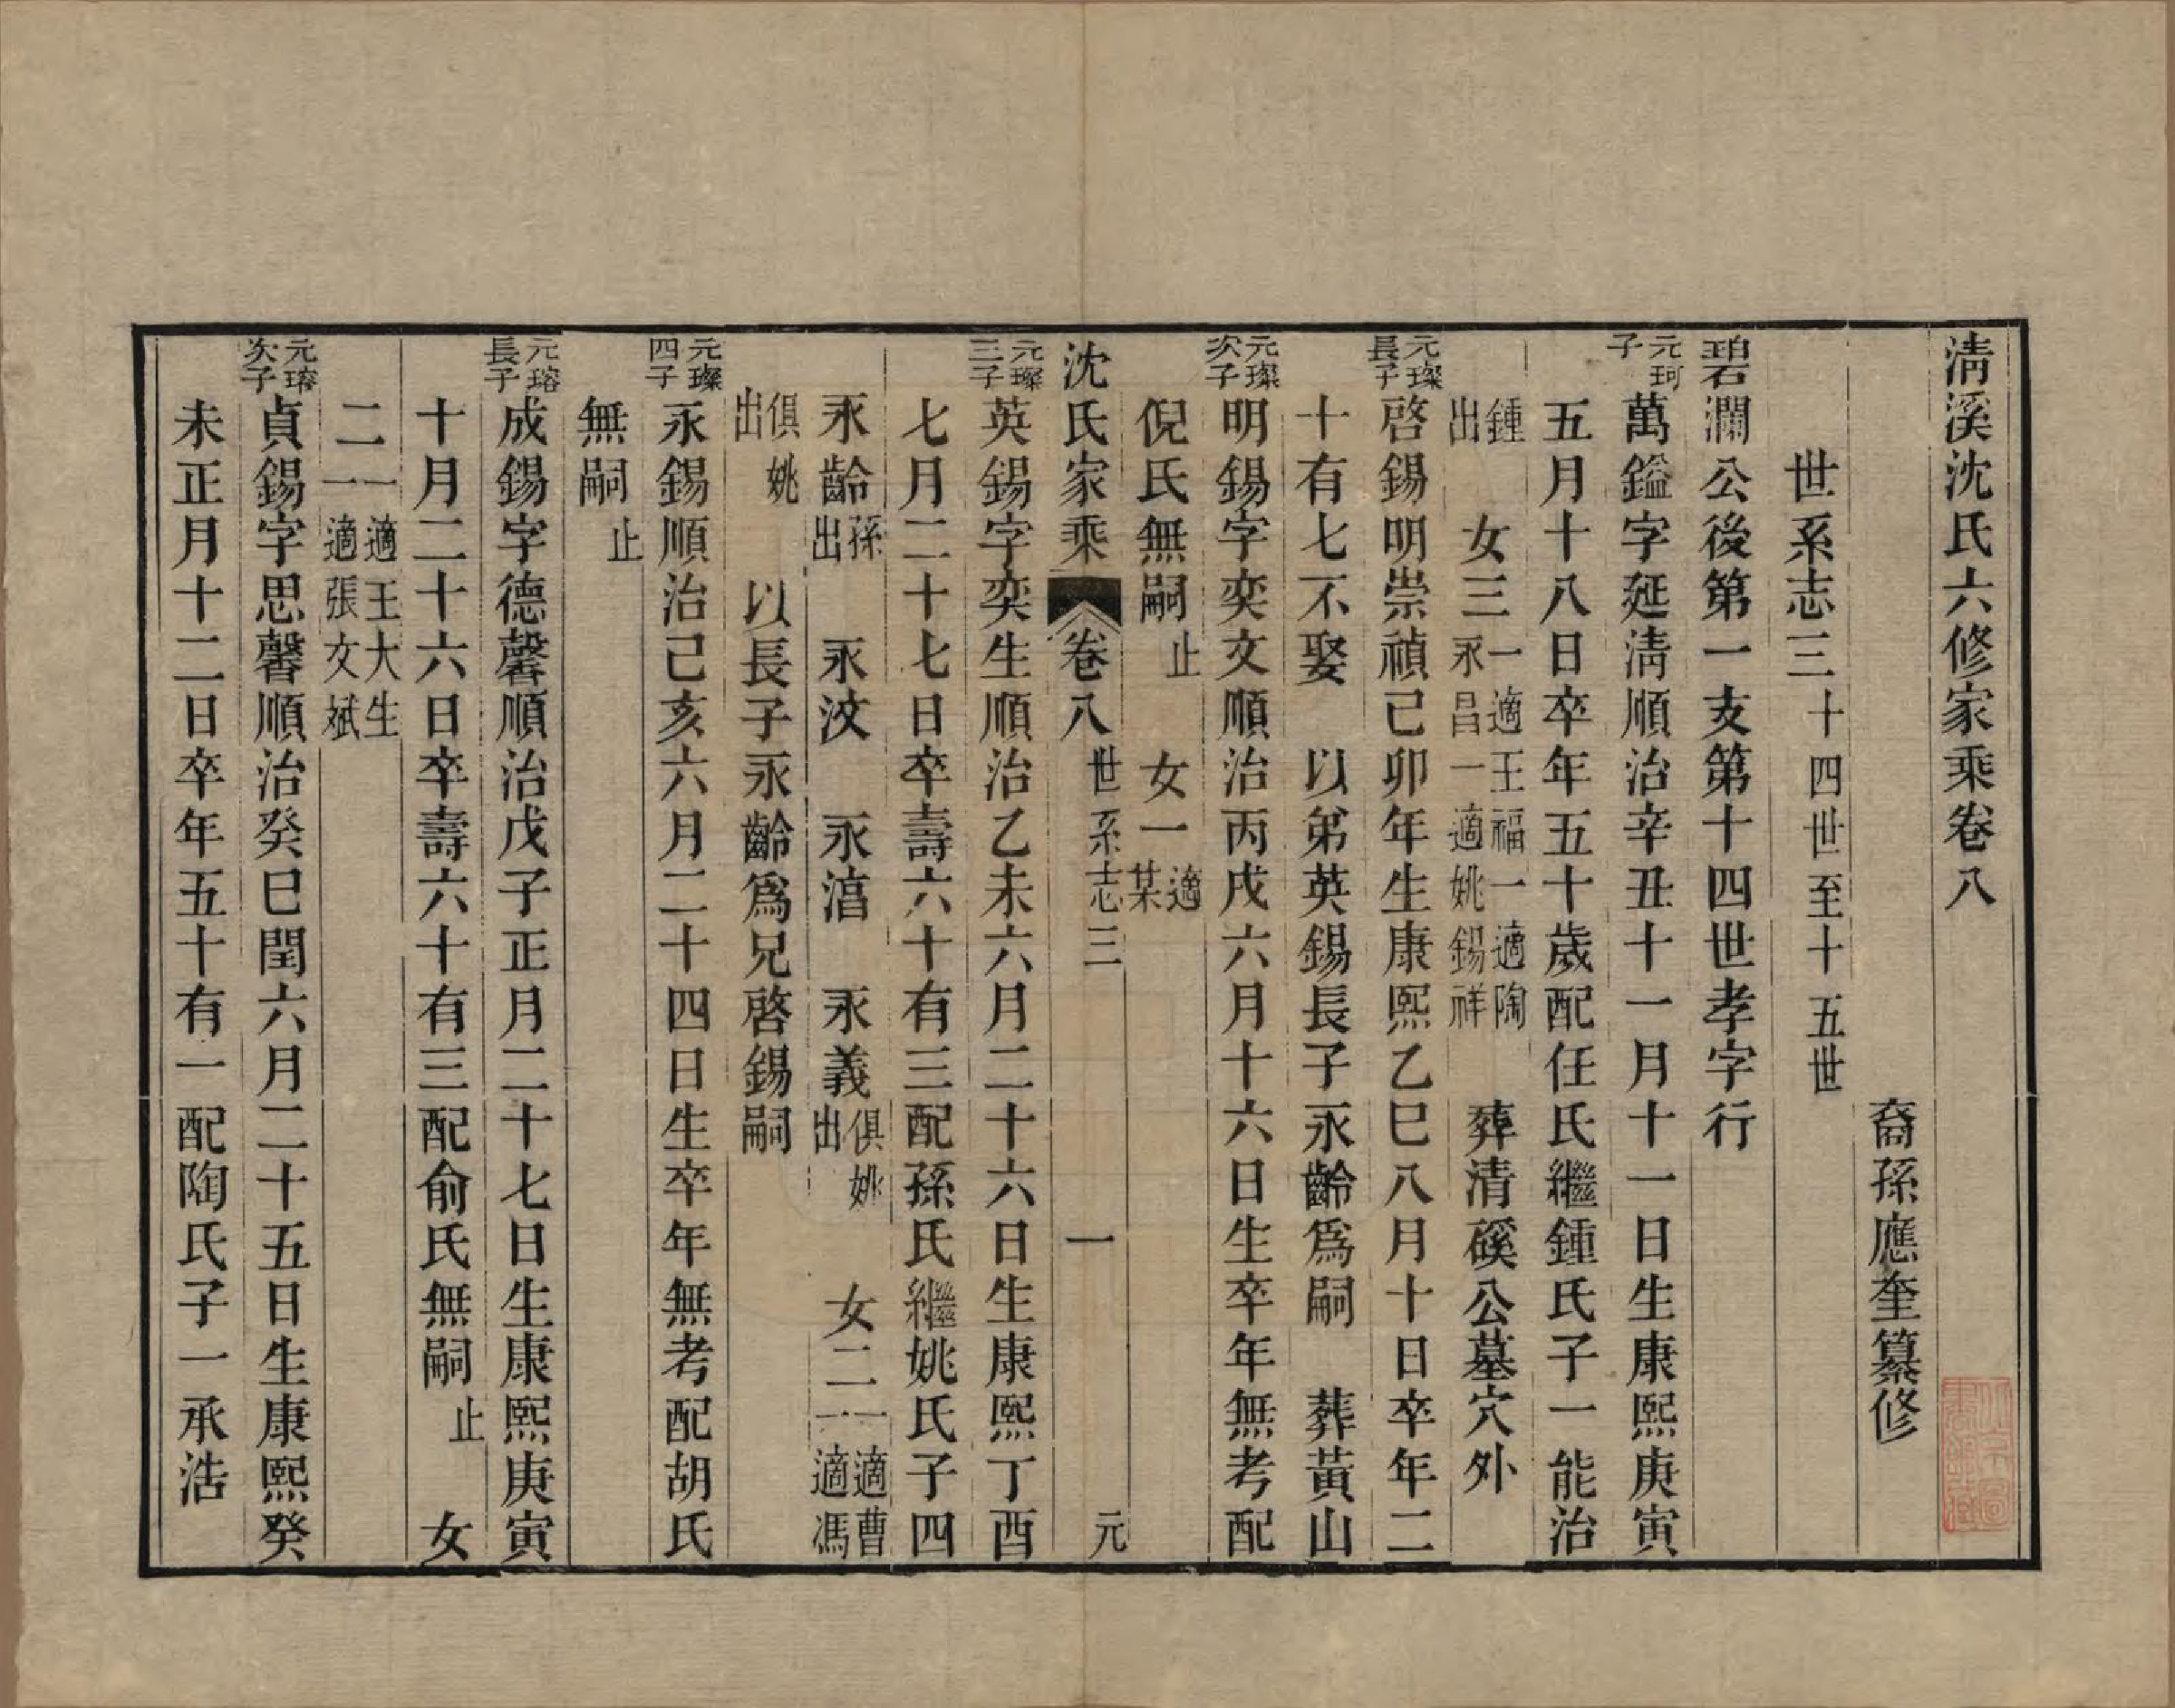 清溪沈氏六修家乘卷八
裔孫應奎纂修
世系志三十四世至十五世
碧瀾公後第一支第十四世孝字行
元珂子
萬鎰字延清順治辛丑十一月十一日生康熙庚寅
五月十八日卒年五十歲配任氏繼鍾氏子一能治
鍾出 女三一適王福一適陶永昌一適姚錫祥 葬清磎公墓穴外
元璨長子
啓錫明崇禎己卯年生康熙乙巳八月十日卒年二
十有七不娶 以弟英錫長子永齡爲嗣 葬黃山
元璨次子
明錫字奕文順治丙戌六月十六日生卒年無考配
倪氏無嗣止 女一適某
沈氏家乘 卷八 世系志三 一 元
元璨三子
英錫字奕生順治乙未六月二十六日生康熙丁酉
七月二十七日卒壽六十有三配孫氏繼姚氏子四
永齡孫出 永汶 永湻 永義俱姚出 女二一適曹一適馮
俱姚出 以長子永齡爲兄啓錫嗣
元璨四子
永錫順治己亥六月二十四日生卒年無考配胡氏
無嗣止
元瑢長子
成錫字德馨順治戊子正月二十七日生康熙庚寅
十月二十六日卒壽六十有三配俞氏無嗣止 女
二一適王大生一適張文斌
元瑢次子
貞錫字思馨順治癸巳閏六月二十五日生康熙癸
未正月十二日卒年五十有一配陶氏子一承浩